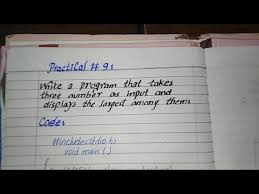 Practical # 9:
Write a program that takes
three number as input and
displays the largest among them:
Code:
#include<stdio.h>
void main()
{